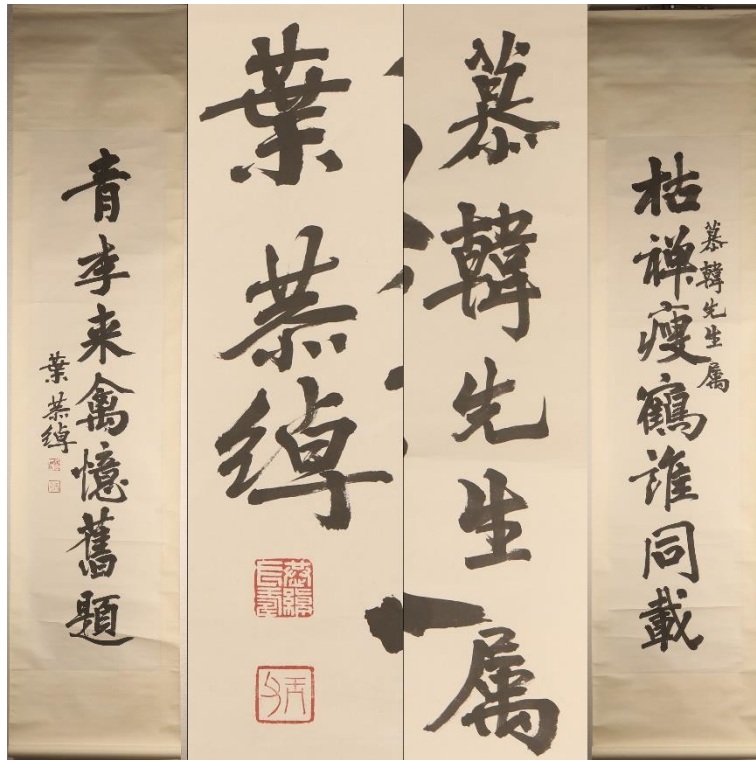 枯禅瘦鶴誰同載
慕韓先生属
慕韓先生属
葉恭綽
青李来禽憶舊題
葉恭綽